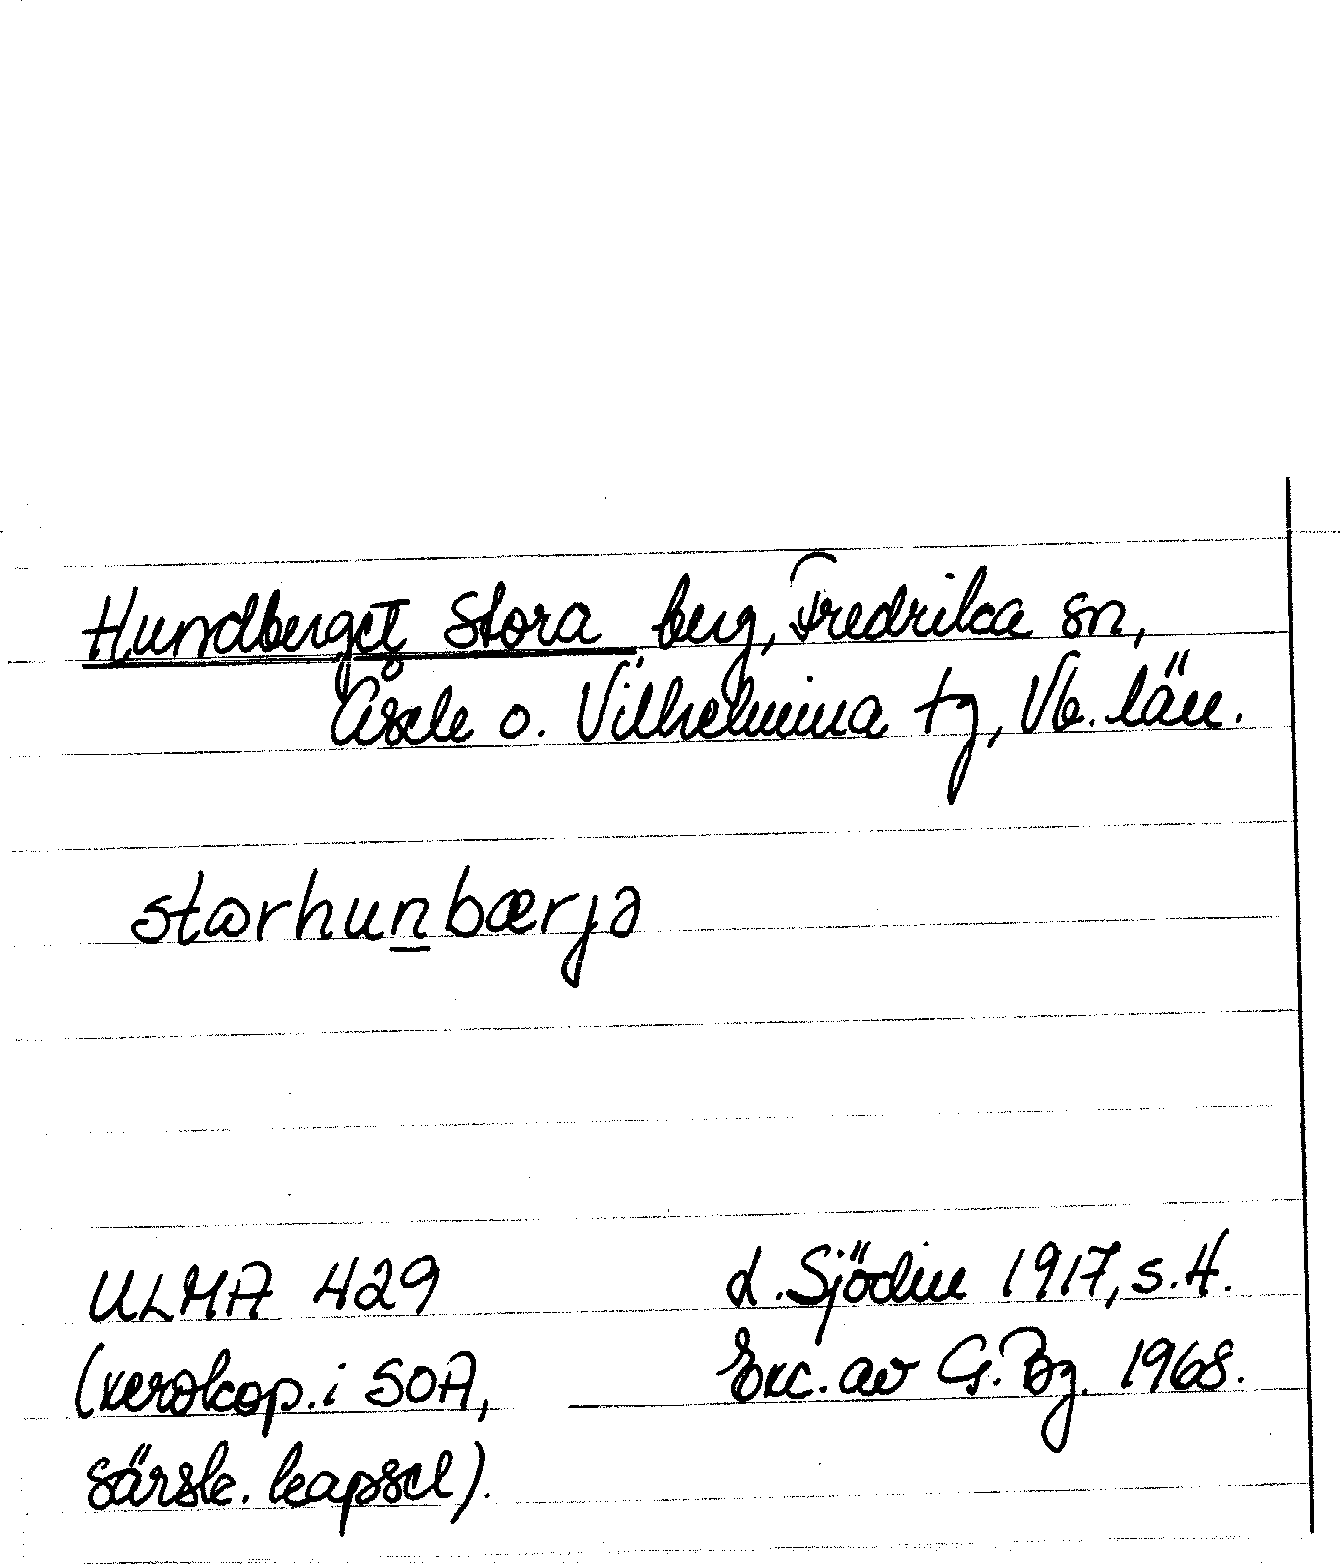 Hundberget, Stora, berg, Fredrika sn,
Åsele o. Vilhelmina tg, Vb. län.
starhun̲bærjə
ULMA 429
(xerokop. i SOA,
särsk. kapsel).
d. Sjödin 1917, s. 4.
Exc. av G. Bg. 1968.